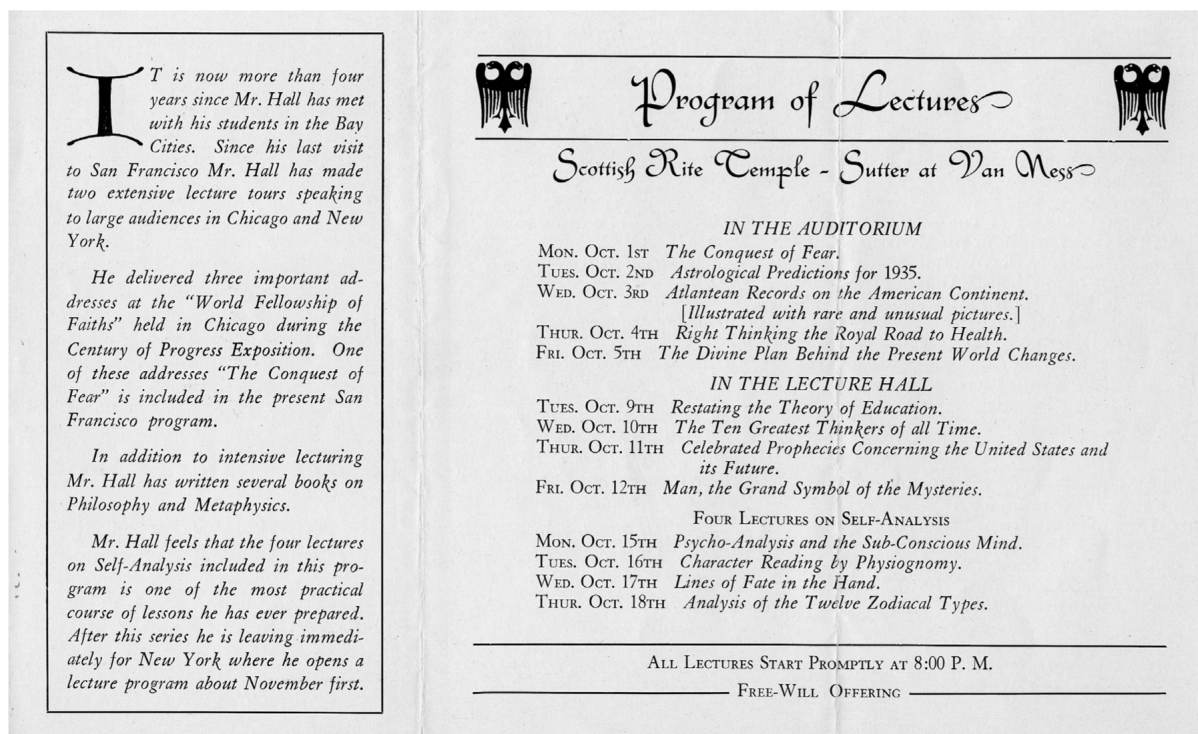 IT is now more than four
years since Mr. Hall has met
with his students in the Bay
Cities. Since his last visit
to San Francisco Mr. Hall has made
two extensive lecture tours speaking
to large audiences in Chicago and New
York.
He delivered three important ad-
dresses at the "World Fellowship of
Faiths" held in Chicago during the
Century of Progress Exposition. One
of these addresses "The Conquest of
Fear" is included in the present San
Francisco program.
In addition to intensive lecturing
Mr. Hall has written several books on
Philosophy and Metaphysics.
Mr. Hall feels that the four lectures
on Self-Analysis included in this pro-
gram is one of the most practical
course of lessons he has ever prepared.
After this series he is leaving immedi-
ately for New York where he opens a
lecture program about November first.
Program of Lectures
Scottish Rite Temple - Sutter at Van Ness
IN THE AUDITORIUM
Mon. Oct. 1st The Conquest of Fear.
Tues. Oct. 2nd Astrological Predictions for 1935.
Wed. Oct. 3rd Atlantean Records on the American Continent.
[Illustrated with rare and unusual pictures.]
Thur. Oct. 4th Right Thinking the Royal Road to Health.
Fri. Oct. 5th The Divine Plan Behind the Present World Changes.
IN THE LECTURE HALL
Tues. Oct. 9th Restating the Theory of Education.
Wed. Oct. 10th The Ten Greatest Thinkers of all Time.
Thur. Oct. 11th Celebrated Prophecies Concerning the United States and
its Future.
Fri. Oct. 12th Man, the Grand Symbol of the Mysteries.
Four Lectures on Self-Analysis
Mon. Oct. 15th Psycho-Analysis and the Sub-Conscious Mind.
Tues. Oct. 16th Character Reading by Physiognomy.
Wed. Oct. 17th Lines of Fate in the Hand.
Thur. Oct. 18th Analysis of the Twelve Zodiacal Types.
All Lectures Start Promptly at 8:00 P. M.
Free-Will Offering